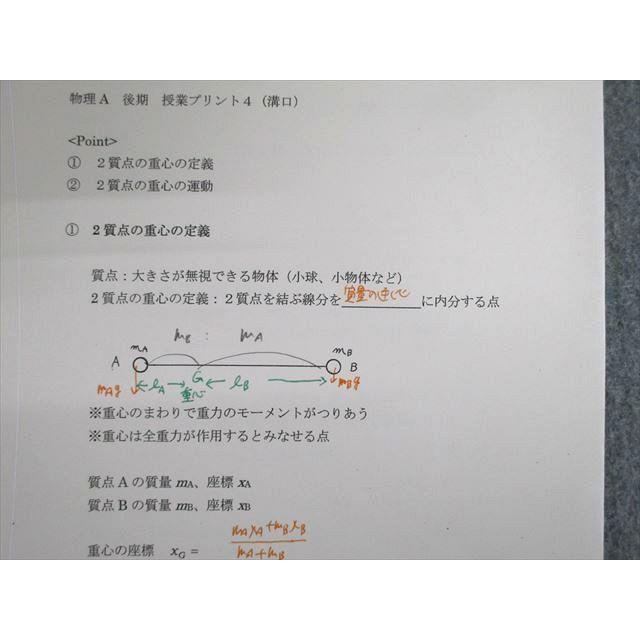 物理A 後期 授業プリント4（溝口）
<Point>
① 2質点の重心の定義
② 2質点の重心の運動
① 2質点の重心の定義
質点：大きさが無視できる物体（小球、小物体など）
2質点の重心の定義：2質点を結ぶ線分を質量の逆比に内分する点
mB : mA
mA mB
A G B
mAg lA 重心 lB mBg
※重心のまわりで重力のモーメントがつりあう
※重心は全重力が作用するとみなせる点
質点Aの質量 mA、座標 xA
質点Bの質量 mB、座標 xB
重心の座標 xG = (mAxA+mBxB)/(mA+mB)